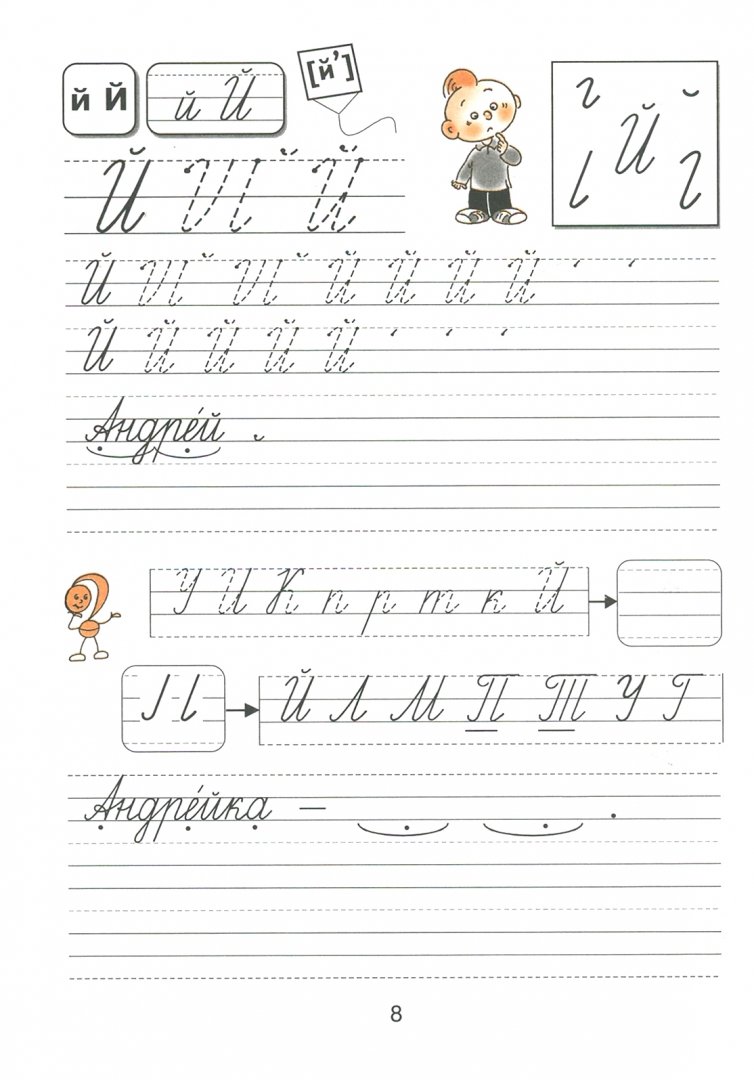 й Й й Й [й’]
Й
Й И И Й
Й И И Й Й Й Й
Й Й Й Й Й
Андре́й
У И К п р т к Й
Й Л М П Т У Г
Андре́йка –            .
8